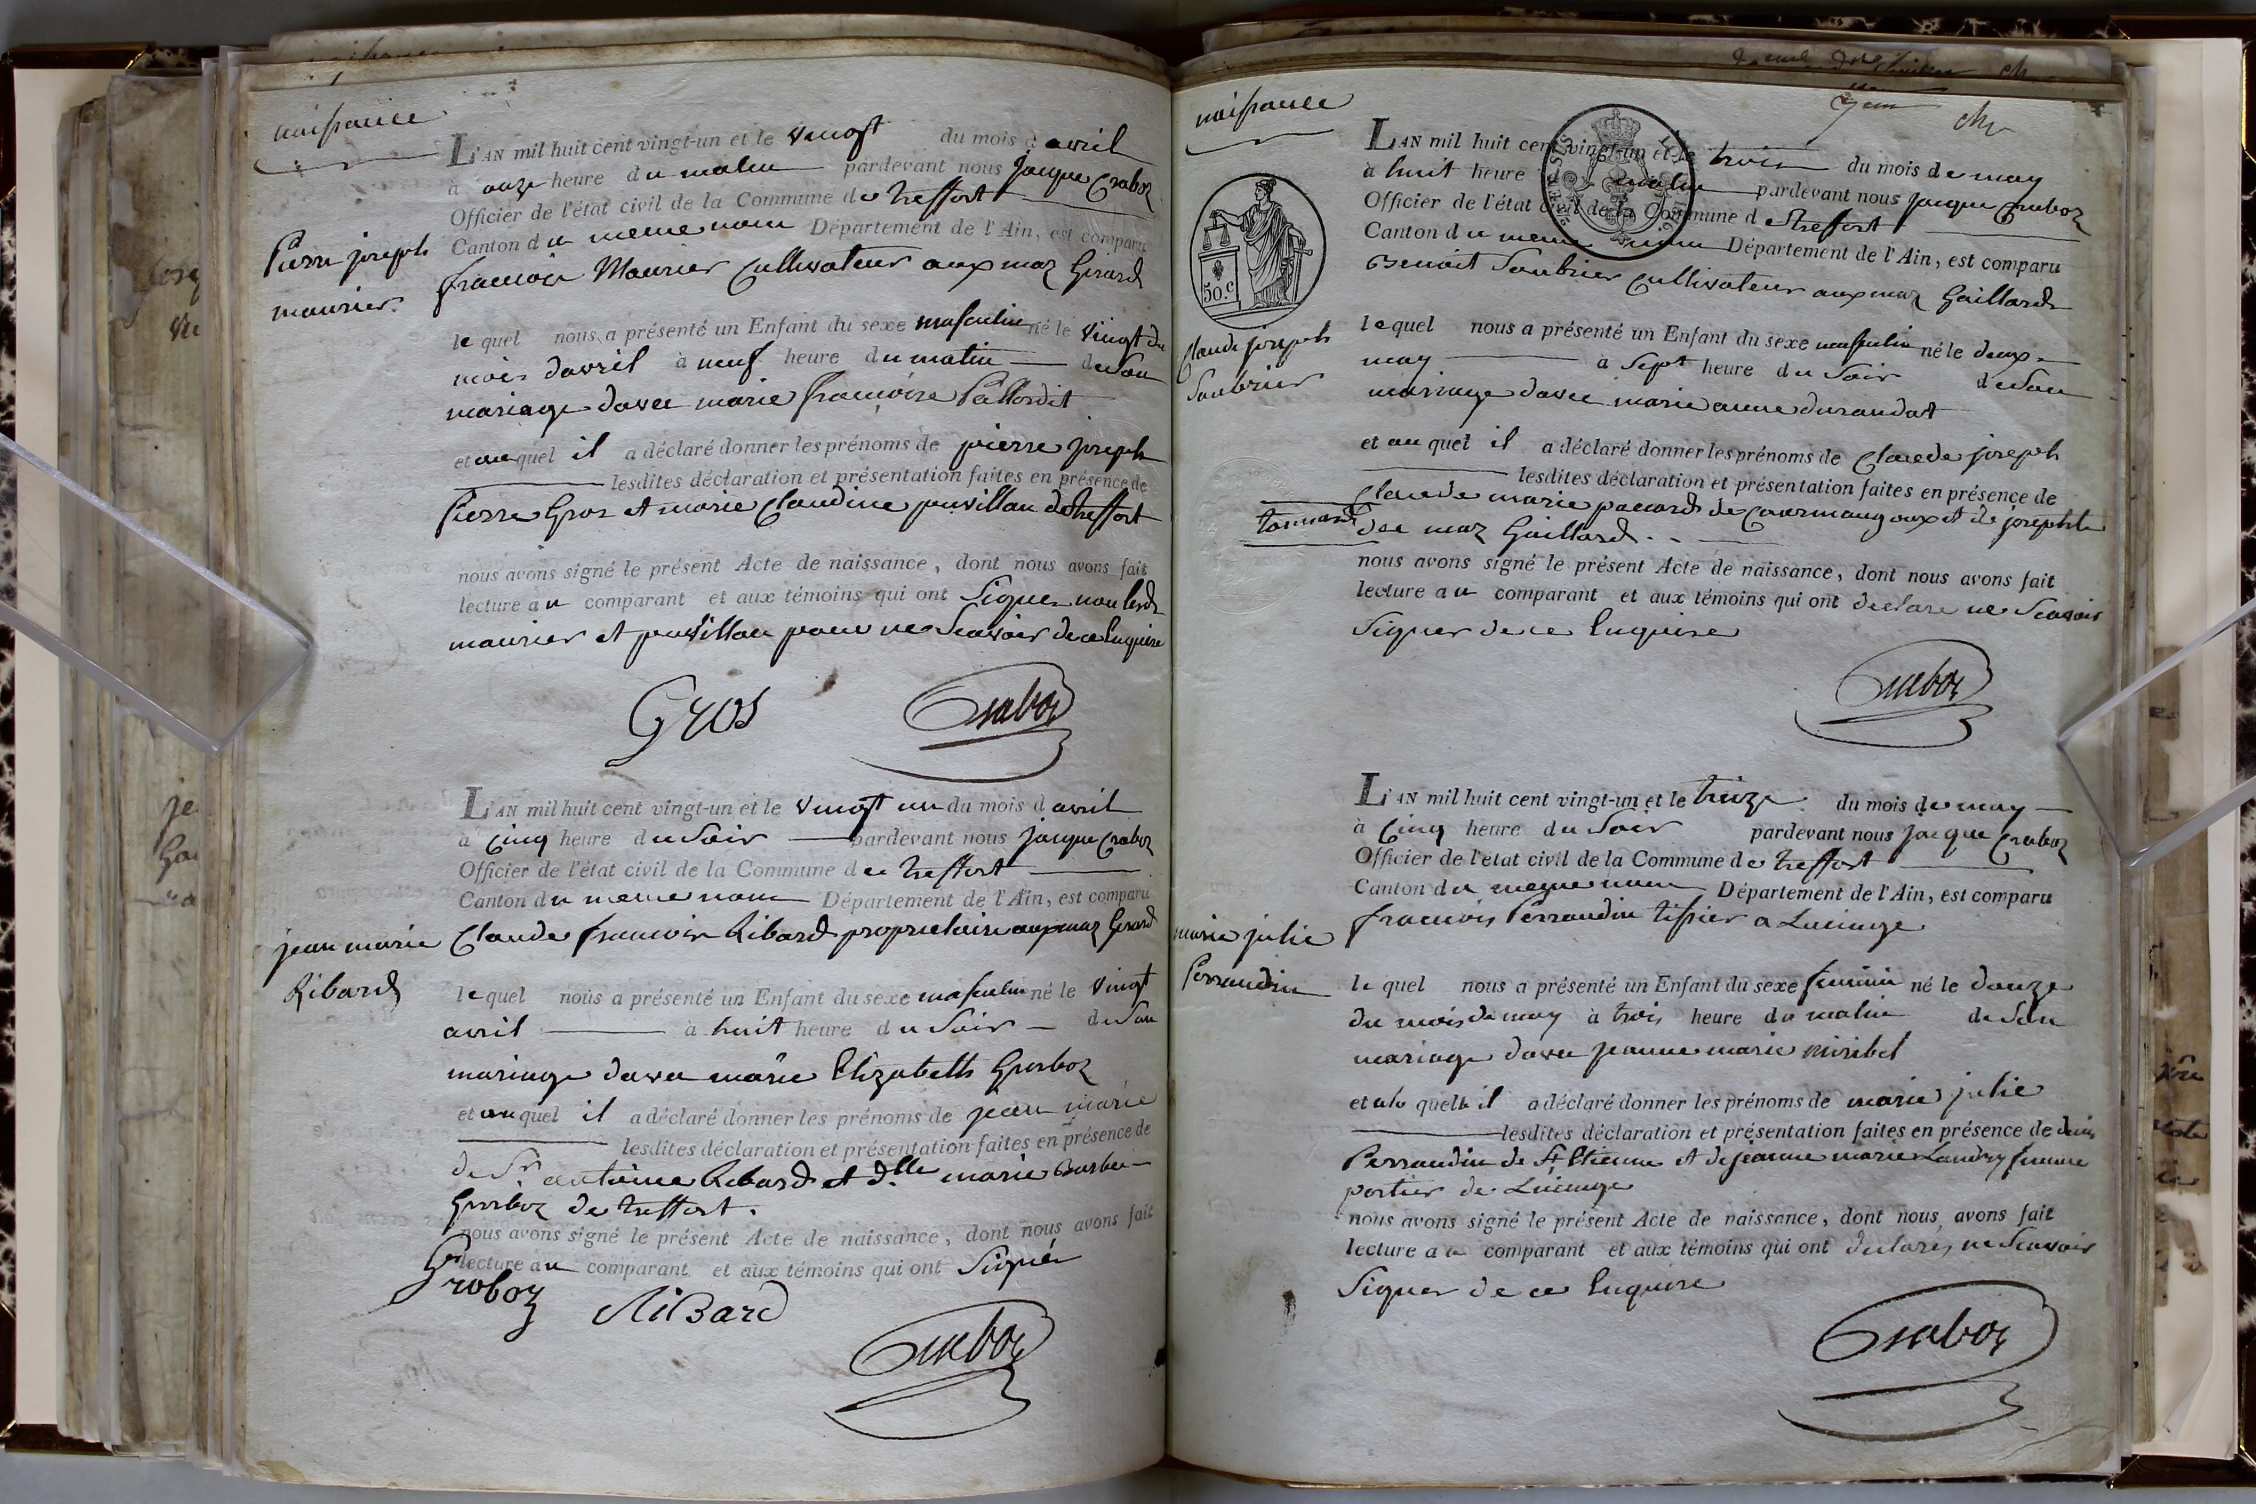 naissance
L'AN mil huit cent vingt-un et le vingt du mois d avril
à onze heure du matin pardevant nous jacque Craboz
Officier de l'état civil de la Commune de treffort
Canton du meme nom Département de l'Ain, est comparu
Pierre joseph
maurier.
francois Maurier Cultivateur aux maz Girard
le quel nous a présenté un Enfant du sexe masculin né le vingt du
mois davril à neuf heure du matin de son
mariage davec marie francoise
et au quel il a déclaré donner les prénoms de pierre joseph
lesdites déclaration et présentation faites en présence de
Pierre Gros et marie Claudine puvillan de treffort
nous avons signé le présent Acte de naissance, dont nous avons fait
lecture au comparant et aux témoins qui ont Signer non lesd
maurier et puvillan pour ne Scavoir de ce Enquire
Gros Craboz
L'AN mil huit cent vingt-un et le vingt un du mois d avril
à Cinq heure du Soir pardevant nous jacque Craboz
Officier de l'état civil de la Commune de treffort
Canton du meme nom Département de l'Ain, est comparu
jean marie
Ribard
Claude francois Ribard proprietaire aux maz Girard
le quel nous a présenté un Enfant du sexe masculin né le vingt
avril à huit heure du Soir de Son
mariage davec marie Elizabeth Groboz
et au quel il a déclaré donner les prénoms de jean marie
lesdites déclaration et présentation faites en présence de
de Sr. antoine Ribard et dlle marie
Groboz de treffort.
nous avons signé le présent Acte de naissance, dont nous avons fait
lecture au comparant et aux témoins qui ont Signér
Groboz RiBard
Craboz
naissance
L'AN mil huit cent vingt-un et le trois du mois de may
à huit heure matin pardevant nous jacque Craboz
Officier de l'état civil de la Commune de treffort
Canton du meme nom Département de l'Ain, est comparu
50.c
Benoit Saubrier Cultivateur aux maz Gaillard
Claude joseph
Saubrier
le quel nous a présenté un Enfant du sexe masculin né le deux
may à Sept heure du Soir de Son
mariage davec marie anne durandat
et au quel il a déclaré donner les prénoms de Claude joseph
lesdites déclaration et présentation faites en présence de
Claude marie pacard de Courmangoux et de joseph
du maz Gaillard.
nous avons signé le présent Acte de naissance, dont nous avons fait
lecture au comparant et aux témoins qui ont declare ne Scavoir
Signer de ce Enquire
Craboz
L'AN mil huit cent vingt-un et le treize du mois de may
à Cinq heure du Soir pardevant nous jacque Craboz
Officier de l'état civil de la Commune de treffort
Canton du meme nom Département de l'Ain, est comparu
marie julie
Perraudin
francois Perraudin tissier a Lucinge
le quel nous a présenté un Enfant du sexe feminin né le douze
du mois de may à trois heure du matin de Son
mariage davec jeanne marie miribel
et a la quelle il a déclaré donner les prénoms de marie julie
lesdites déclaration et présentation faites en présence de denis
Perraudin de St. Etienne et de jeanne marie Landry femme
portier de Lucinge
nous avons signé le présent Acte de naissance, dont nous avons fait
lecture au comparant et aux témoins qui ont declarés ne Scavoir
Signer de ce Enquire
Craboz